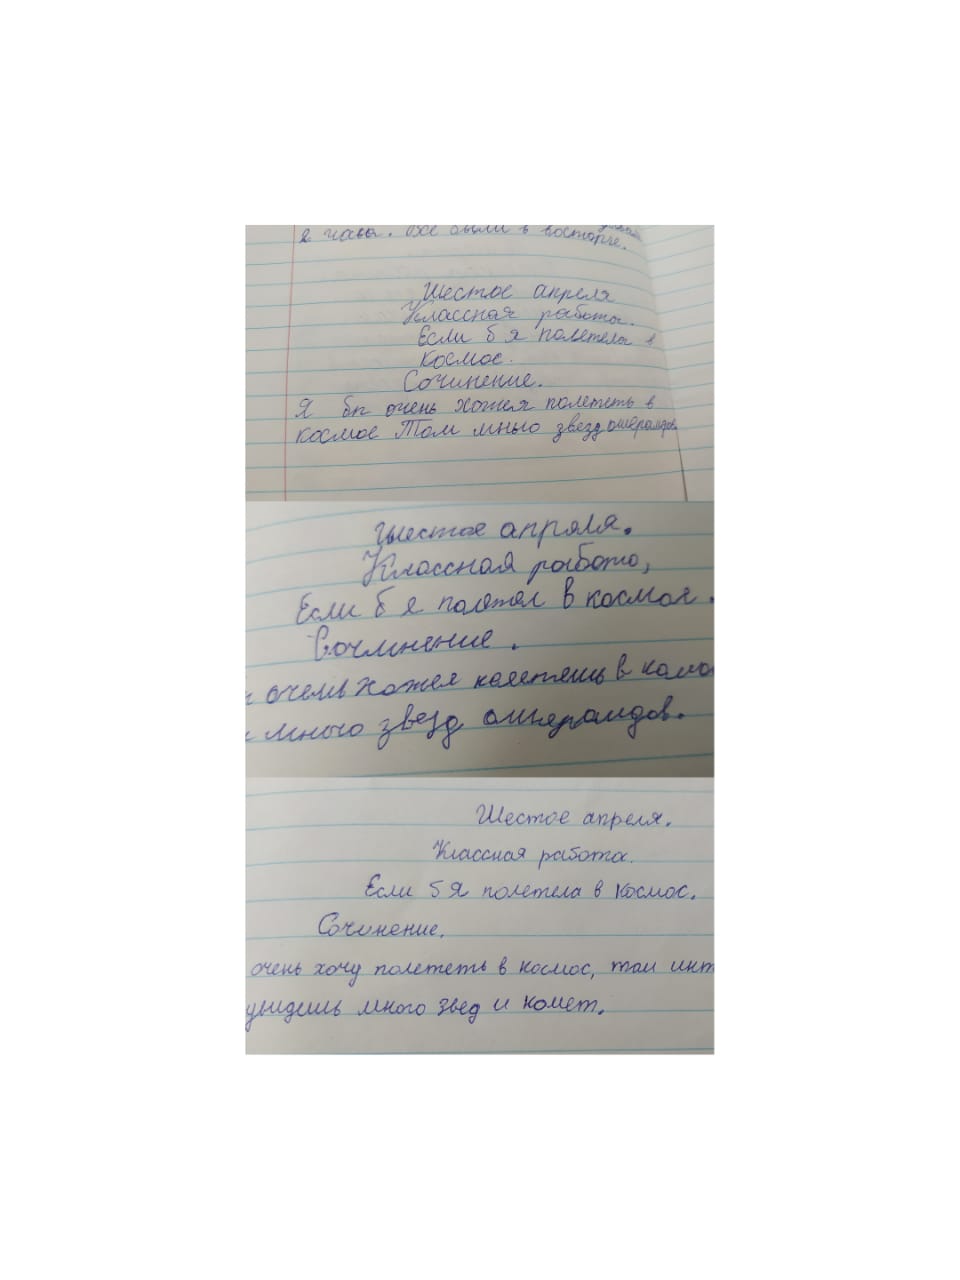 2 часа. Все были в восторге.
Шестое апреля
Классная работа.
Если б я полетела в
космос.
Сочинение.
Я бы очень хожея полететь в
космос Там мньго звезд
Шестое апреля.
Классная работа,
Если б я полетел в космос.
Сочинение.
очень хожея полетешь в
много звезд
Шестое апреля.
Классная работа.
Если б я полетела в космос.
Сочинение.
очень хочу полететь в космос, там инт
увидешь много звед и комет.